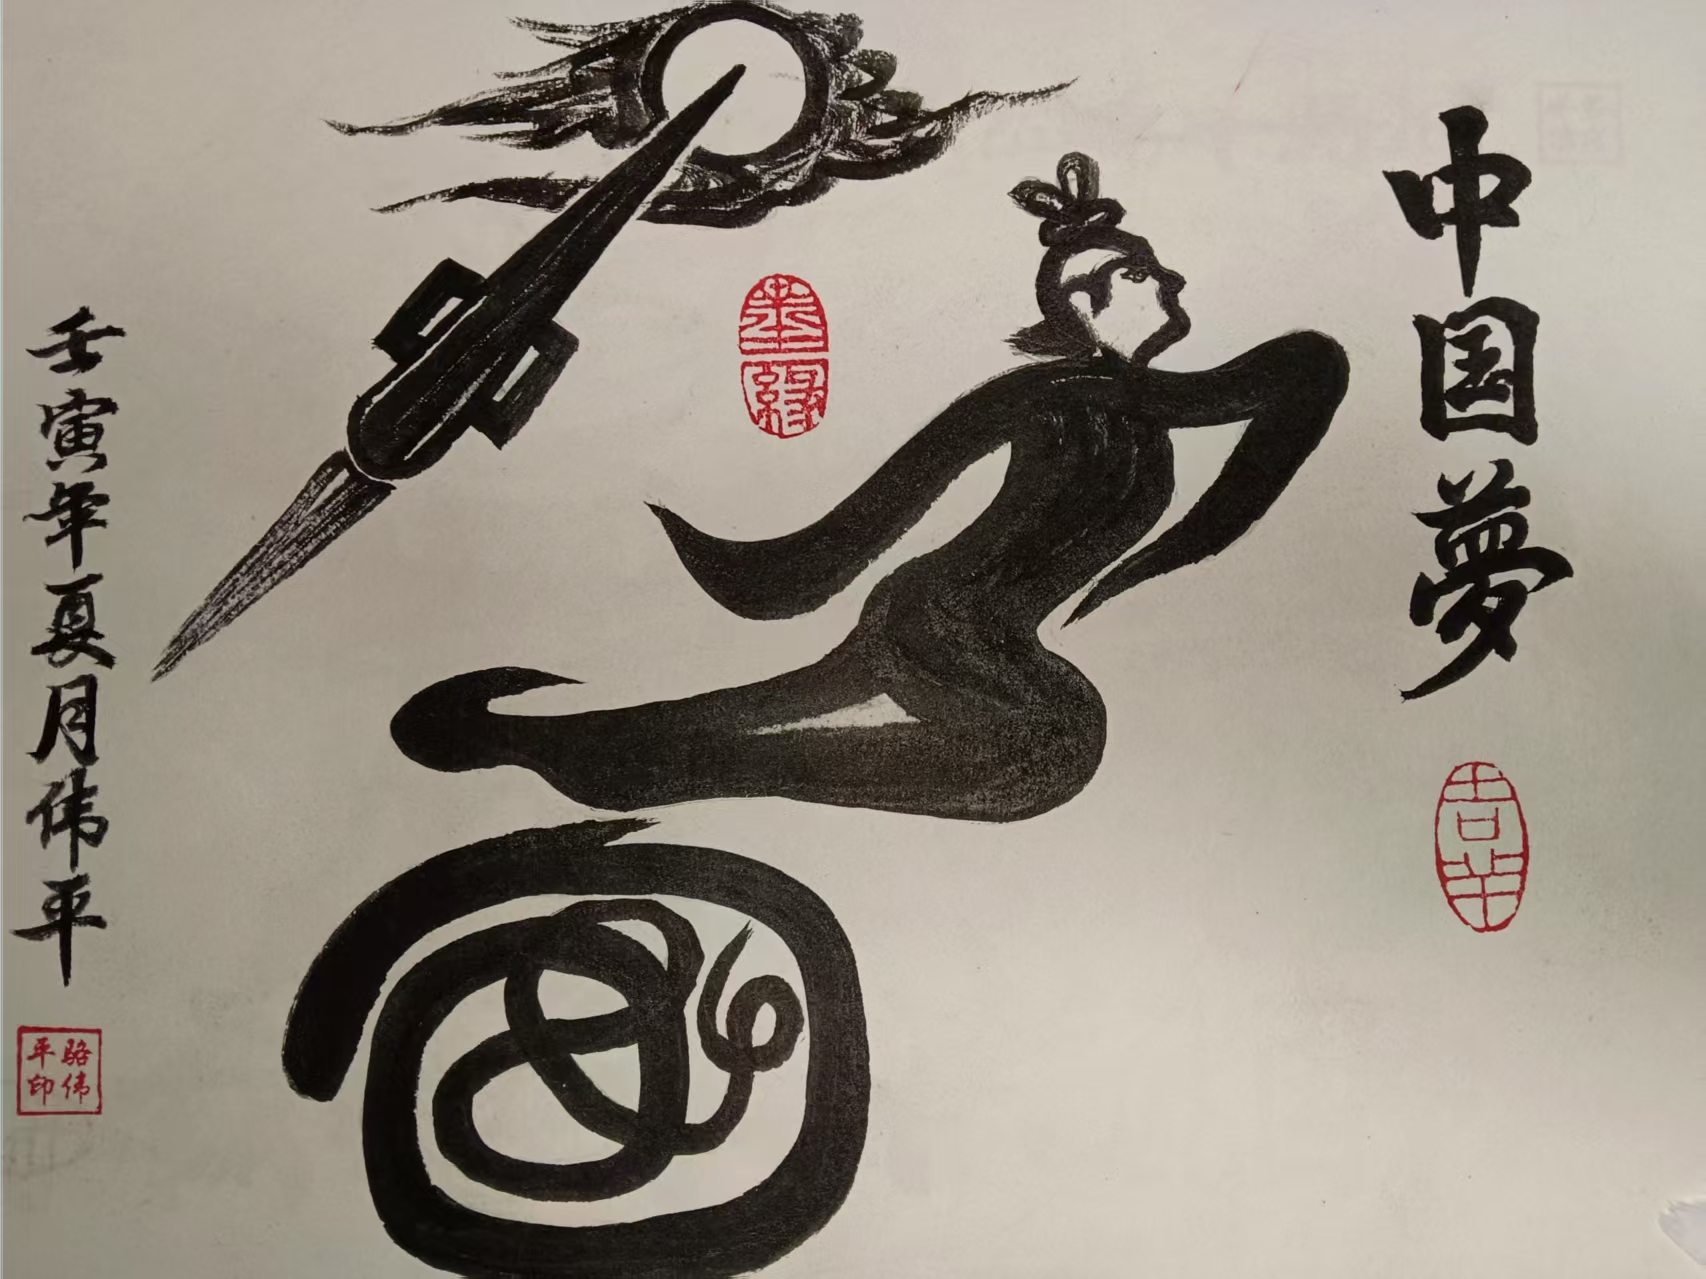 中国夢
吉羊
壬寅年夏月伟平
骆伟
平印